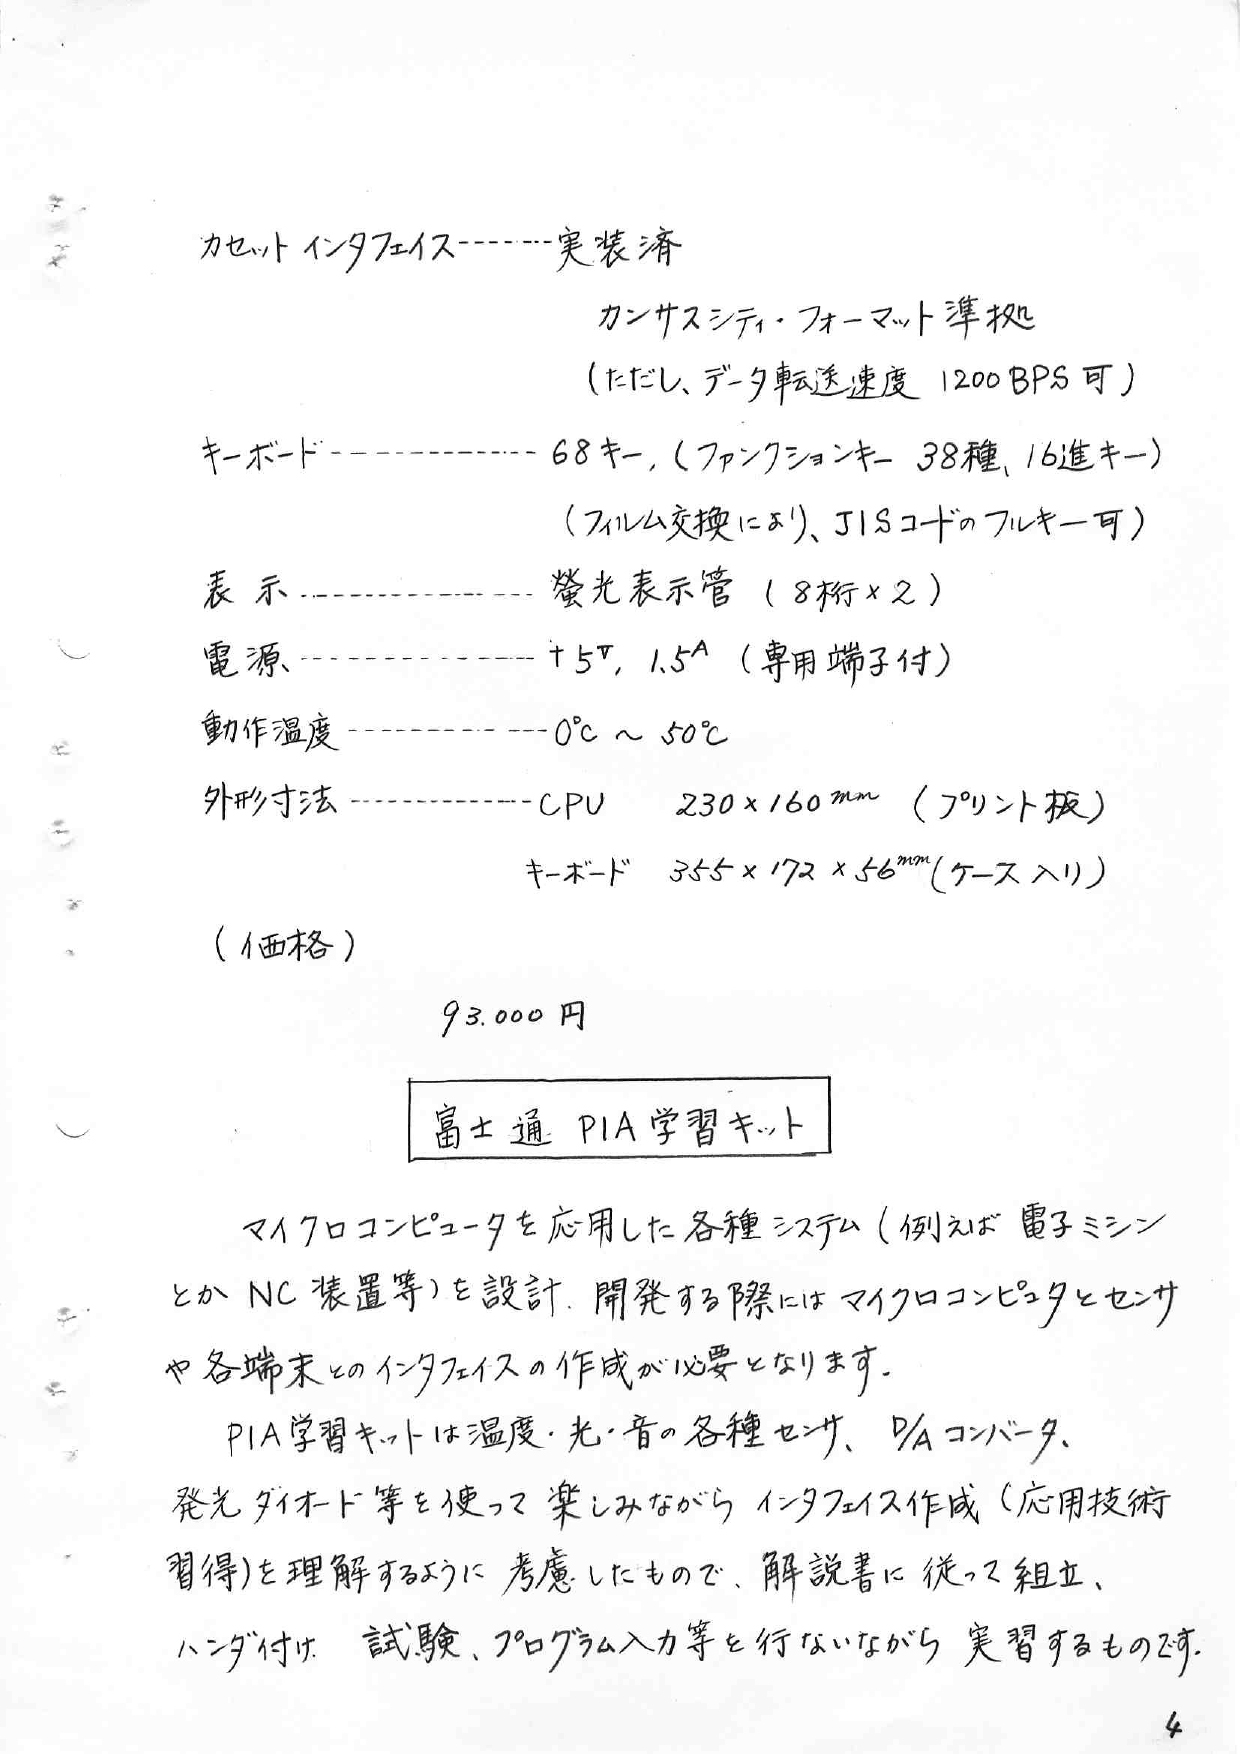 カセット インタフェイス-------実装済
カンサスシティ・フォーマット準拠
(ただし、データ転送速度 1200BPS可)
キーボード-------------68キー,(ファンクションキー 38種、16進キー)
(フィルム交換により、JISコードのフルキー可)
表 示--------------螢光表示管 (8桁×2)
電 源--------------+5V, 1.5A (専用端子付)
動作温度------------0℃ ~ 50℃
外形寸法------------CPU 230×160mm (プリント板)
キーボード 355×172×56mm(ケース入り)
(価格)
93.000円
富士通 PIA学習キット
マイクロコンピュータを応用した各種システム(例えば 電子ミシン
とか NC 装置等)を設計、開発する際にはマイクロコンピュタとセンサ
や各端末とのインタフェイスの作成が必要となります。
PIA学習キットは温度・光・音の各種センサ、D/Aコンバータ、
発光ダイオード等を使って楽しみながらインタフェイス作成(応用技術
習得)を理解するように考慮したもので、解説書に従って組立、
ハンダ付け、試験、プログラム入力等を行ないながら実習するものです。
4